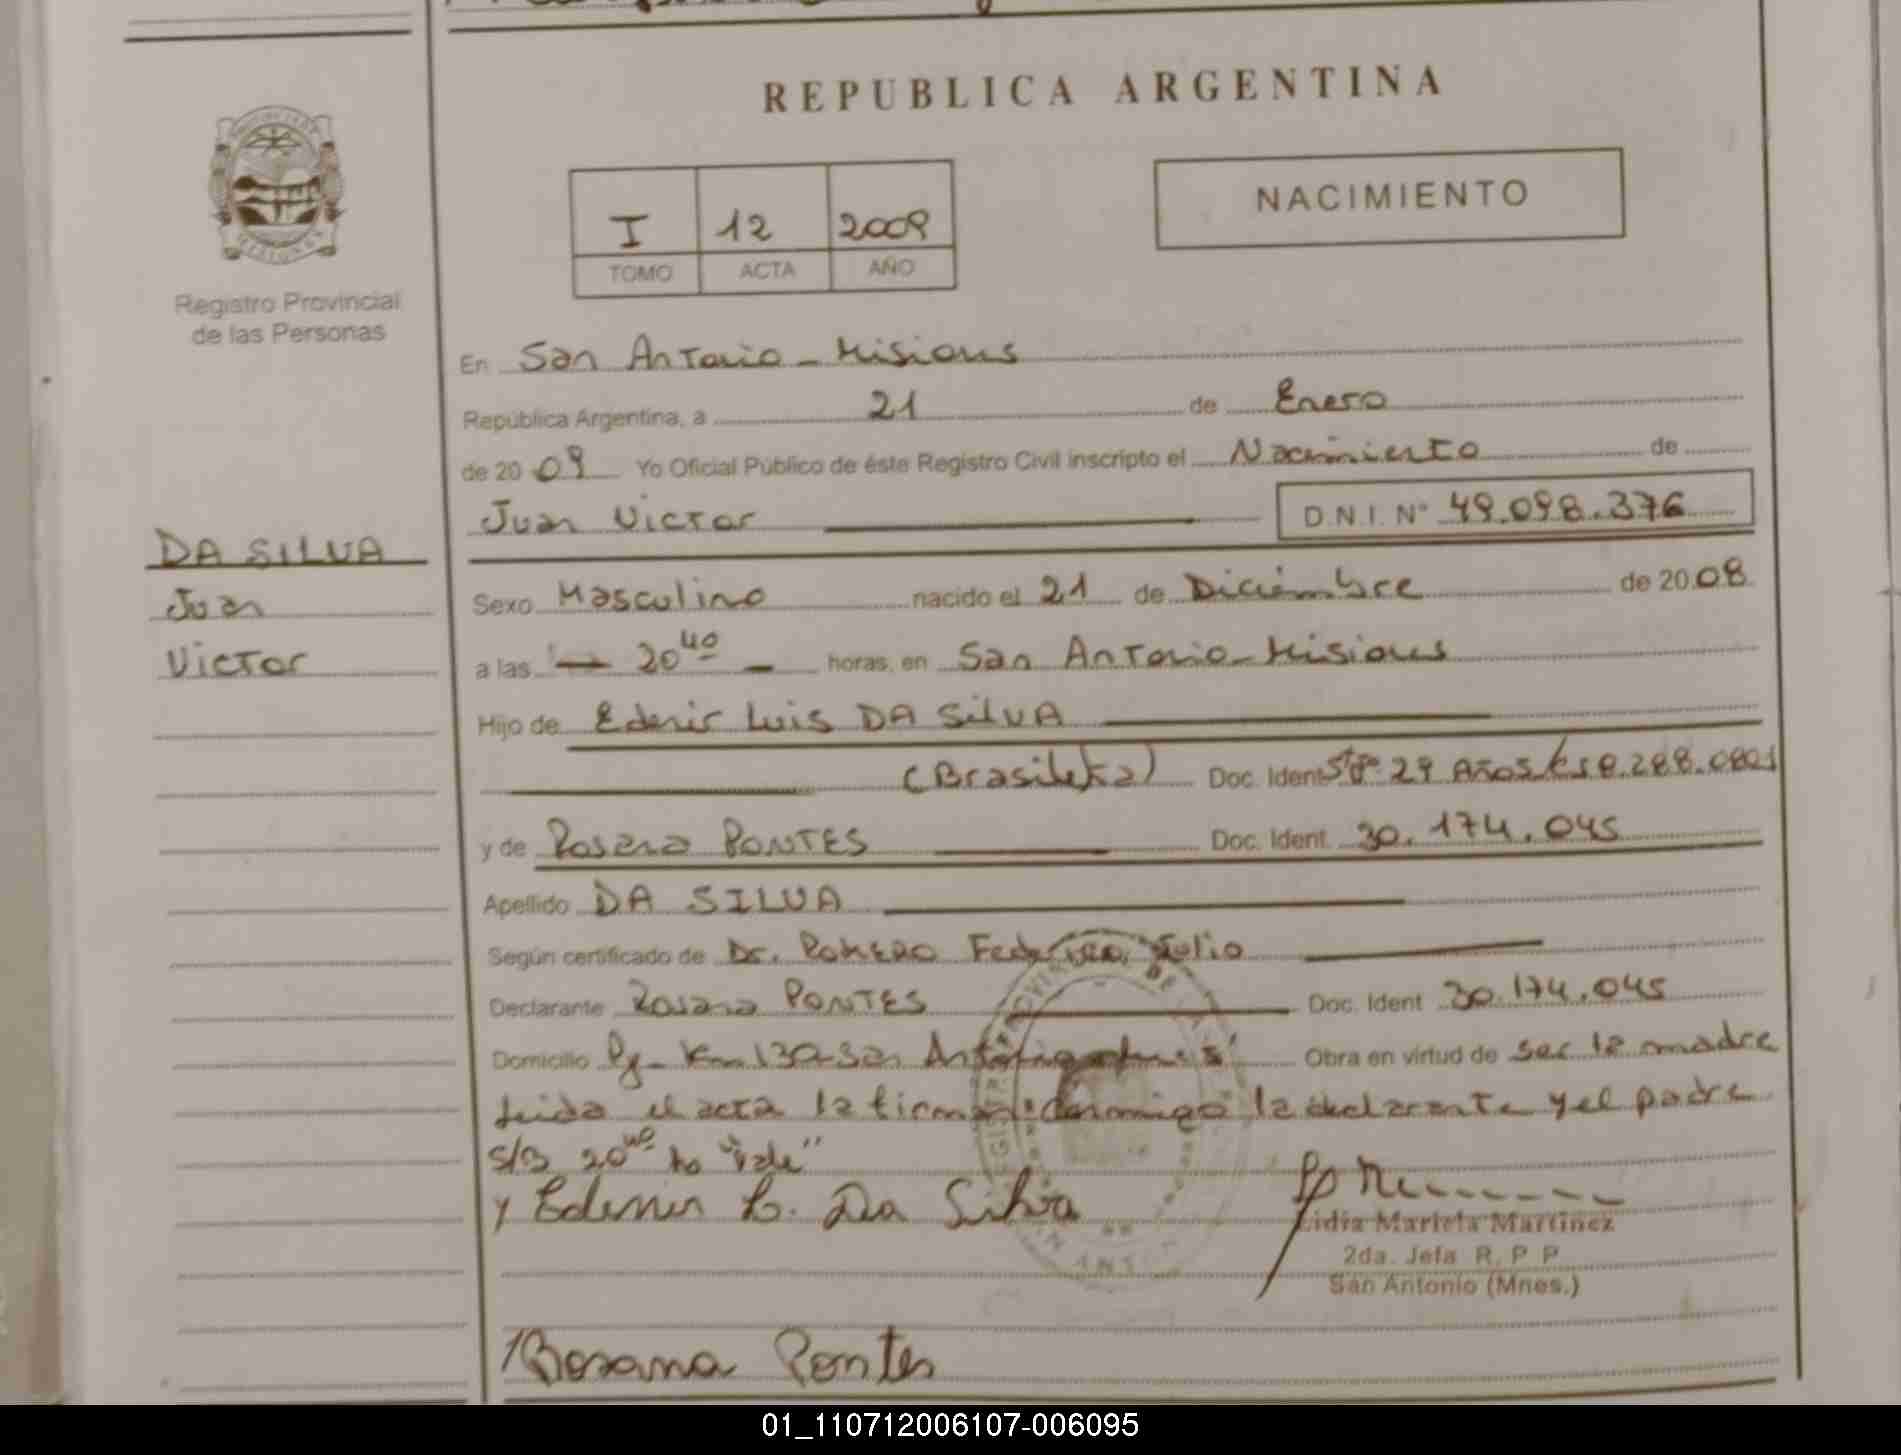 REPUBLICA ARGENTINA
PROVINCIA DE
MISIONES
Registro Provincial
de las Personas
I 12 2009
TOMO ACTA AÑO
NACIMIENTO
En San Antonio - Misiones
República Argentina, a 21 de Enero
de 20 09 Yo Oficial Público de éste Registro Civil inscripto el Nacimiento de
Juan Victor D.N.I. Nº 49.098.376
DA SILVA
Juan
Victor
Sexo Masculino nacido el 21 de Diciembre de 20 08
a las 20 40 horas, en San Antonio - Misiones
Hijo de Edenir Luis DA SILVA
Doc. Ident 29 Años
y de Rosana PONTES Doc. Ident. 30.174.045
Apellido DA SILVA
Según certificado de Dr. Romero Federico Julio
Declarante Rosana PONTES Doc. Ident 30.174.045
Domicilio Km 130 San Obra en virtud de ser la madre
leida el acta la firman conmigo la declarante y el padre
S/B 20 40 ho "vale"
y Edenir L. Da Silva
Lidia Mariela Martinez
2da. Jefa R. P. P.
San Antonio (Mnes.)
Rosana Pontes
01_110712006107-006095